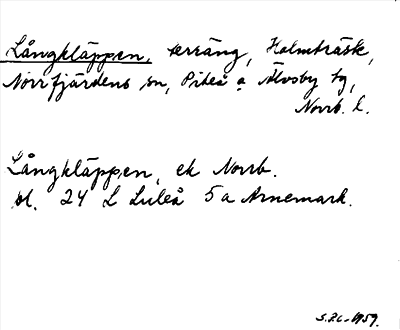 Långkläppen, terräng, Holmträsk,
Norrfjärdens sn, Piteå o Älvsby tg,
Norrb. l.
Långkläppen, ek Norrb.
bl. 24 L Luleå 5a Arnemark.
1959.